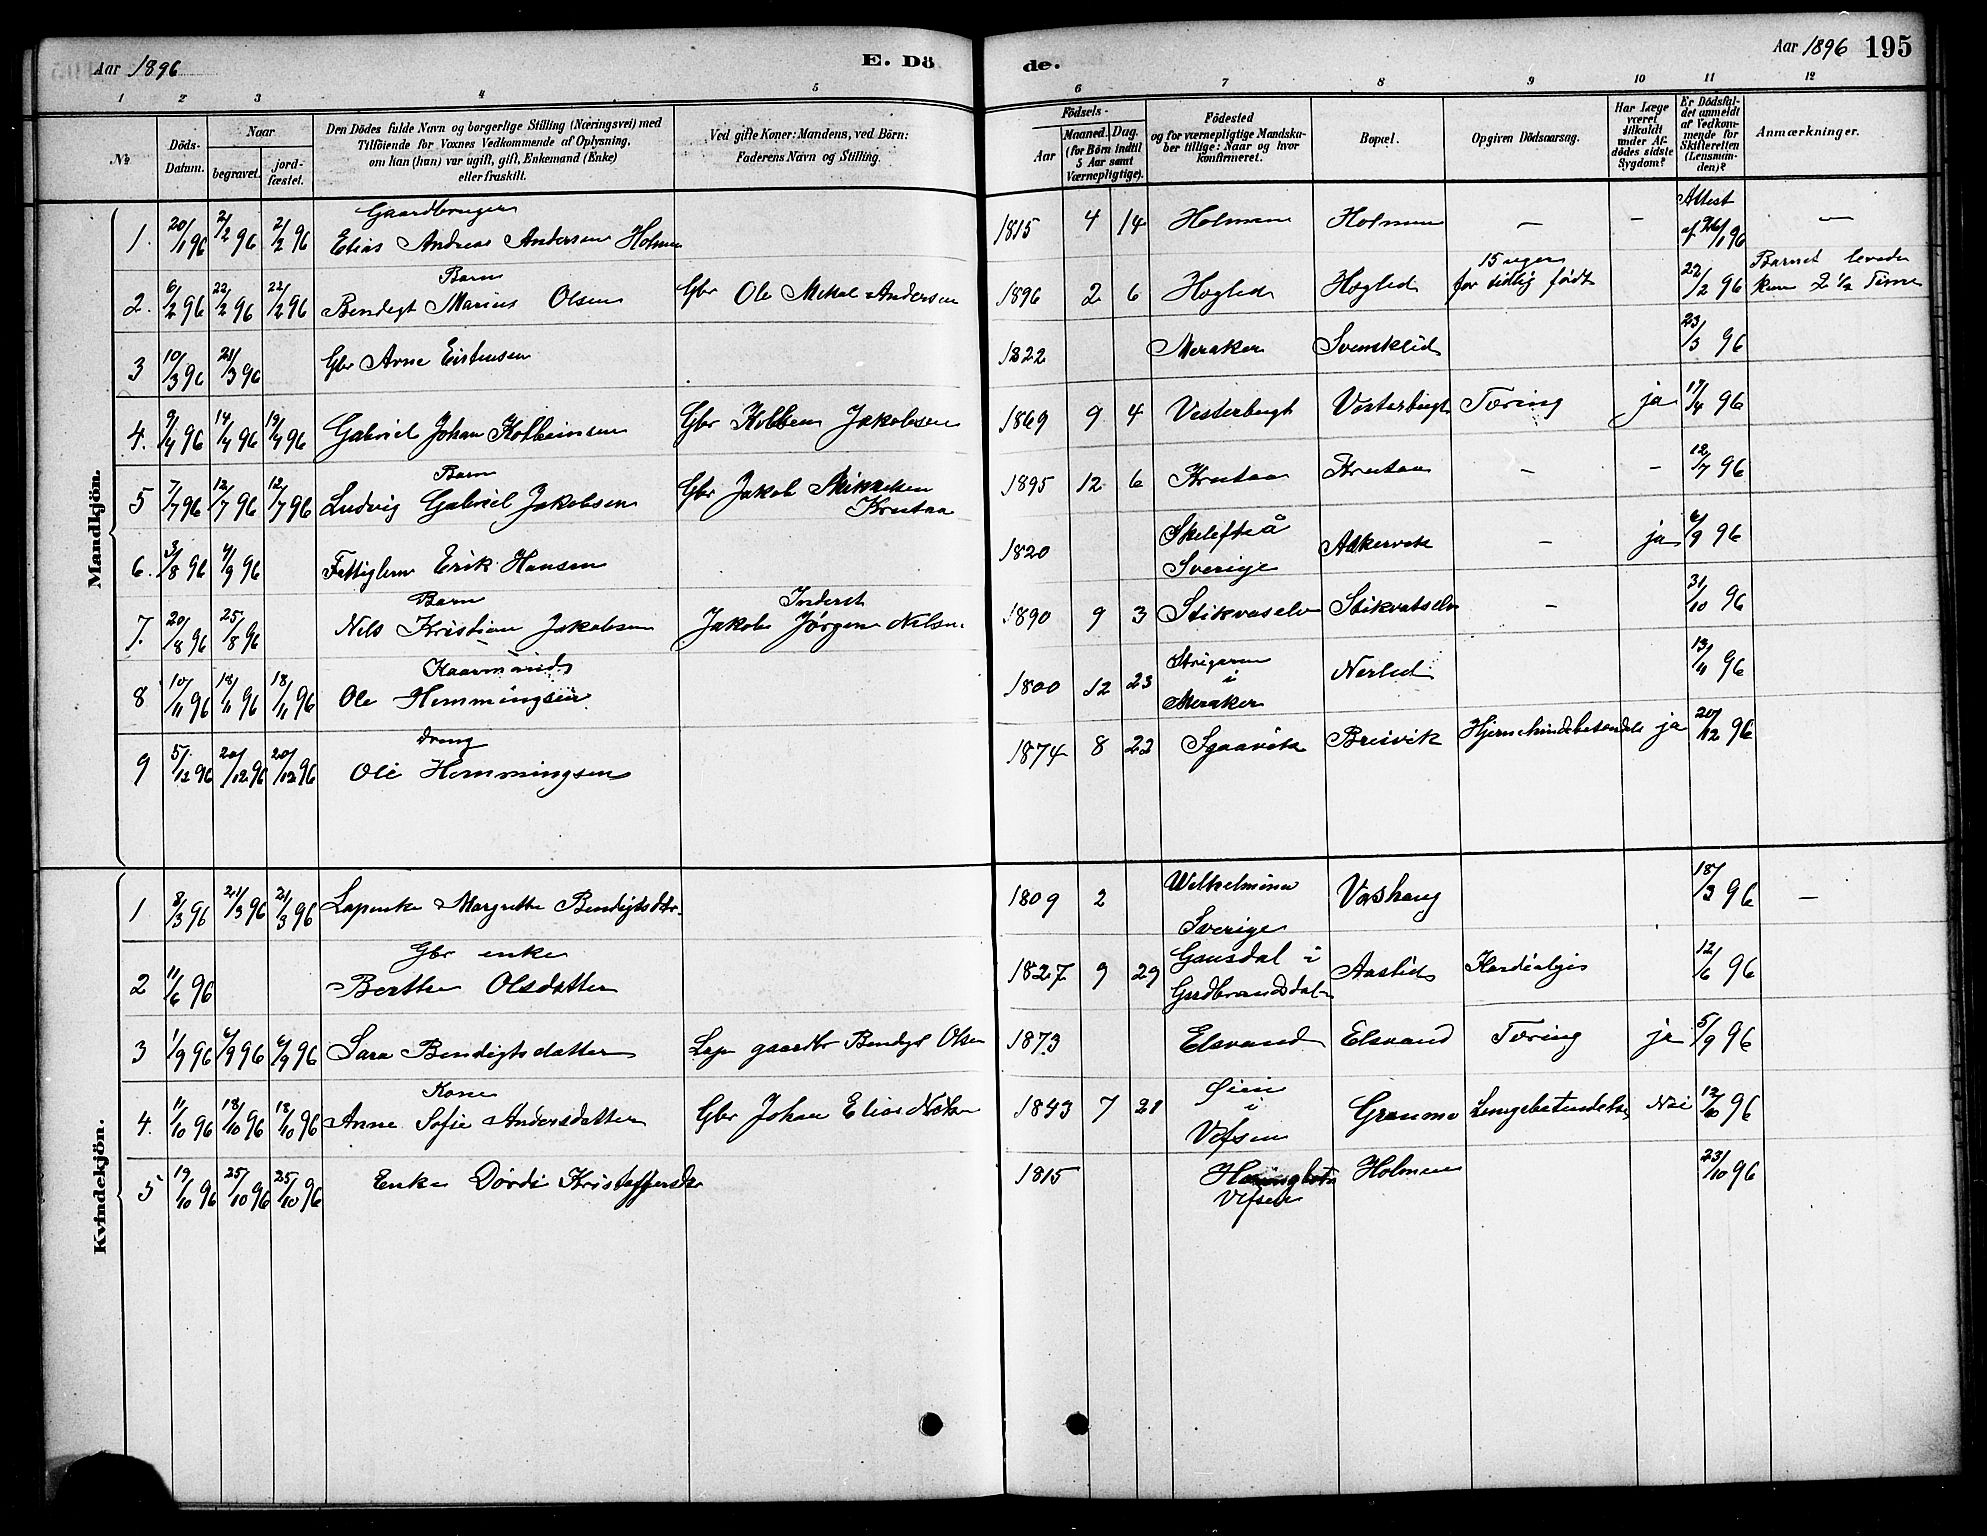 Aar 1896
E. Dö
de.
Aar 1896
195
1 2 3 4 5 6 7 8 9 10 11 12
№
Döds-Datum.
Naar
begravet.
jord-fæstet.
Den Dödes fulde Navn og borgerlige Stilling (Næringsvei) med
Tilföiende for Voxnes Vedkommende af Oplysning,
om han (hun) var ugift, gift, Enkemand (Enke)
eller fraskilt.
Ved gifte Koner: Mandens, ved Börn:
Faderens Navn og Stilling.
Födsels-
Aar
Maaned. Dag.
(for Börn indtil
5 Aar samt
Værnepligtige).
Födested
og for værnepligtige Mandska-
ber tillige: Naar og hvor
konfirmeret.
Bopæl.
Opgiven Dödsaarsag.
Har Læge
været
tilkaldt
under Af-
dödes sidste
Sygdom?
Er Dödsfal-
det anmeldt
af Vedkom-
mende for
Skifteretten
(Lensman-
den)?
Anmærkninger.
Mandkjön.
Gaardbruger
1. 20/1 96 2/2 96 2/2 96 Elias Andreas Andersen Holmen 1815 4 14 Holmen Holmen — — Attest af 26/1 96 —
Barn
2. 6/2 96 22/2 96 22/2 96 Bendigt Marius Olsen Gbr Ole Mikal Andersen 1896 2 6 Hoglid Hoglid 15 uger for tidlig födt 22/2 96 Barnet levede kun 2 1/2 Time
3 10/3 96 21/3 96 Gbr Arne Eistensen 1822 Meraker Svensklid 23/3 96
4. 9/4 96 14/4 96 19/4 96 Gabriel Johan Kolbeinsen Gbr Kolben Jakobsen 1869 9 4 Vesterbugt Vesterbugt Tæring ja 17/4 96
Barn
5 7/7 96 12/7 96 12/7 96 Ludvig Gabriel Jakobsen Gbr Jakob Mikkelsen Krutaa 1895 12 6 Krutaa Krutaa — — 12/7 96
6. 3/8 96 4/9 96 Fattiglem Erik Hansen 1820 Skelefteå Sverige Aakervik — ja 6/9 96
Barn Inderst
7. 20/8 96 25/8 96 Nils Kristian Jakobsen Jakob Jørgen Nilsen 1890 9 3 Stikvaselv Stikvatselv — 31/10 96
Kaarmand
8 10/11 96 18/11 96 18/11 96 Ole Hemmingsen 1800 12 23 i Meraker Nerlid 13/11 96
dreng
9 5/12 96 20/12 96 20/12 96 Ole Hemmingsen 1874 8 22 Sgaavik Breivik Hjernehindebetendelse ja 20/12 96
Kvindekjön.
1 8/3 96 21/3 96 21/3 96 Lapenke Margrethe Bendigtsdtr. 1809 2 Wilhelmina Sverige Vashaug 18/3 96 —
Gbr enke
2 11/6 96 Berthe Olsdatter 1827 9 29 Gausdal i Gudbrandsdalen Aaslid Kardialgis 12/6 96
3 1/9 96 6/9 96 6/9 96 Sara Bendigtsdatter Lap gaardbr Bendigt Olsen 1873 Elsvand Elsvand Tæring ja 5/9 96
Kone
4. 11/10 96 18/10 96 18/10 96 Anne Sofie Andersdatter Gbr Johan Elias 1843 7 21 Øien i Vefsen Grønmo Lungebetendelse Nei 12/10 96
5 19/10 96 25/10 96 25/10 96 Enke Dørdi Kristoffersdtr 1815 Vefsen Holmen 23/10 96